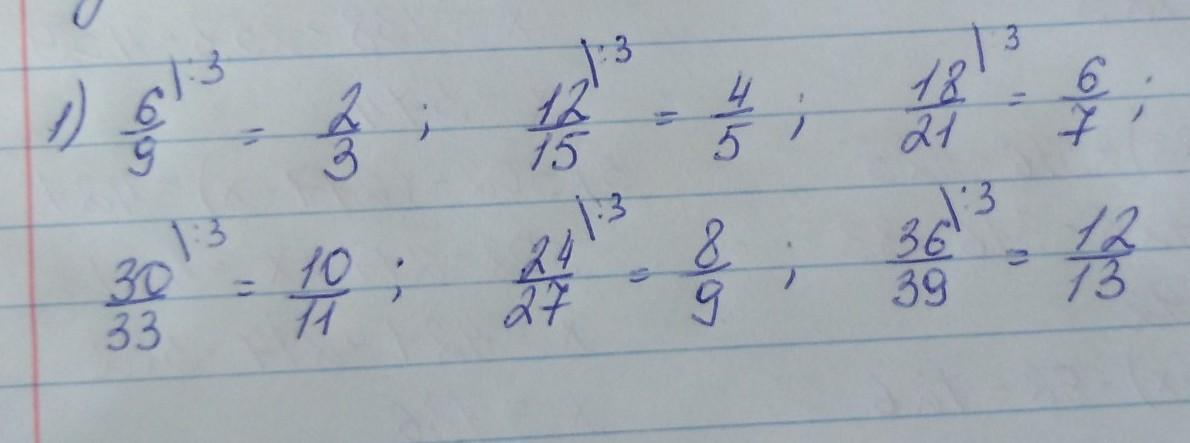 1) 6/9 \:3 = 2/3 ; 12/15 \:3 = 4/5 ; 18/21 \3 = 6/7 ;
30/33 \:3 = 10/11 ; 24/27 \:3 = 8/9 ; 36/39 \:3 = 12/13